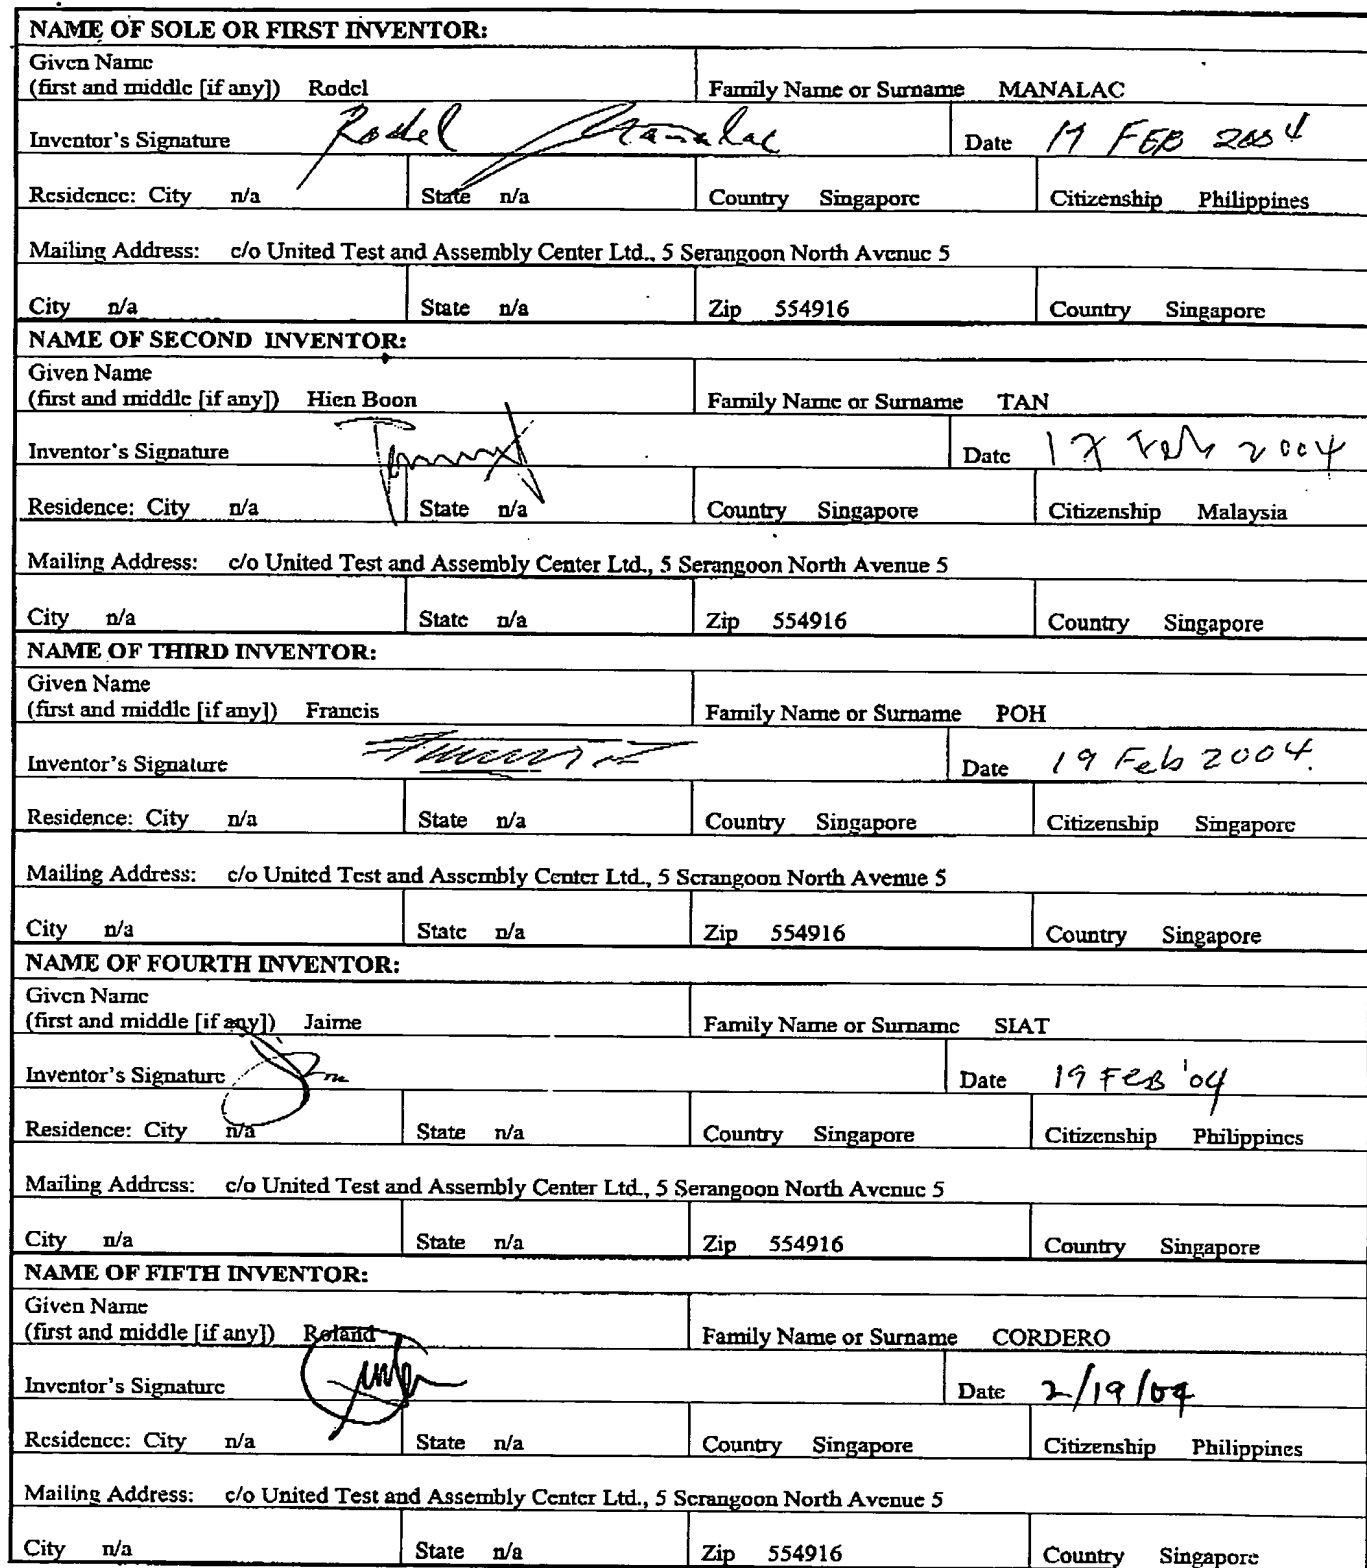 NAME OF SOLE OR FIRST INVENTOR:
Given Name
(first and middle [if any]) Rodel Family Name or Surname MANALAC
Inventor's Signature Rodel Manalac Date 17 FEB 2004
Residence: City n/a State n/a Country Singapore Citizenship Philippines
Mailing Address: c/o United Test and Assembly Center Ltd., 5 Serangoon North Avenue 5
City n/a State n/a Zip 554916 Country Singapore
NAME OF SECOND INVENTOR:
Given Name
(first and middle [if any]) Hien Boon Family Name or Surname TAN
Inventor's Signature Date 17 Feb 2004
Residence: City n/a State n/a Country Singapore Citizenship Malaysia
Mailing Address: c/o United Test and Assembly Center Ltd., 5 Serangoon North Avenue 5
City n/a State n/a Zip 554916 Country Singapore
NAME OF THIRD INVENTOR:
Given Name
(first and middle [if any]) Francis Family Name or Surname POH
Inventor's Signature Date 19 Feb 2004.
Residence: City n/a State n/a Country Singapore Citizenship Singapore
Mailing Address: c/o United Test and Assembly Center Ltd., 5 Serangoon North Avenue 5
City n/a State n/a Zip 554916 Country Singapore
NAME OF FOURTH INVENTOR:
Given Name
(first and middle [if any]) Jaime Family Name or Surname SIAT
Inventor's Signature Date 19 FEB '04
Residence: City n/a State n/a Country Singapore Citizenship Philippines
Mailing Address: c/o United Test and Assembly Center Ltd., 5 Serangoon North Avenue 5
City n/a State n/a Zip 554916 Country Singapore
NAME OF FIFTH INVENTOR:
Given Name
(first and middle [if any]) Roland Family Name or Surname CORDERO
Inventor's Signature Date 2/19/04
Residence: City n/a State n/a Country Singapore Citizenship Philippines
Mailing Address: c/o United Test and Assembly Center Ltd., 5 Serangoon North Avenue 5
City n/a State n/a Zip 554916 Country Singapore